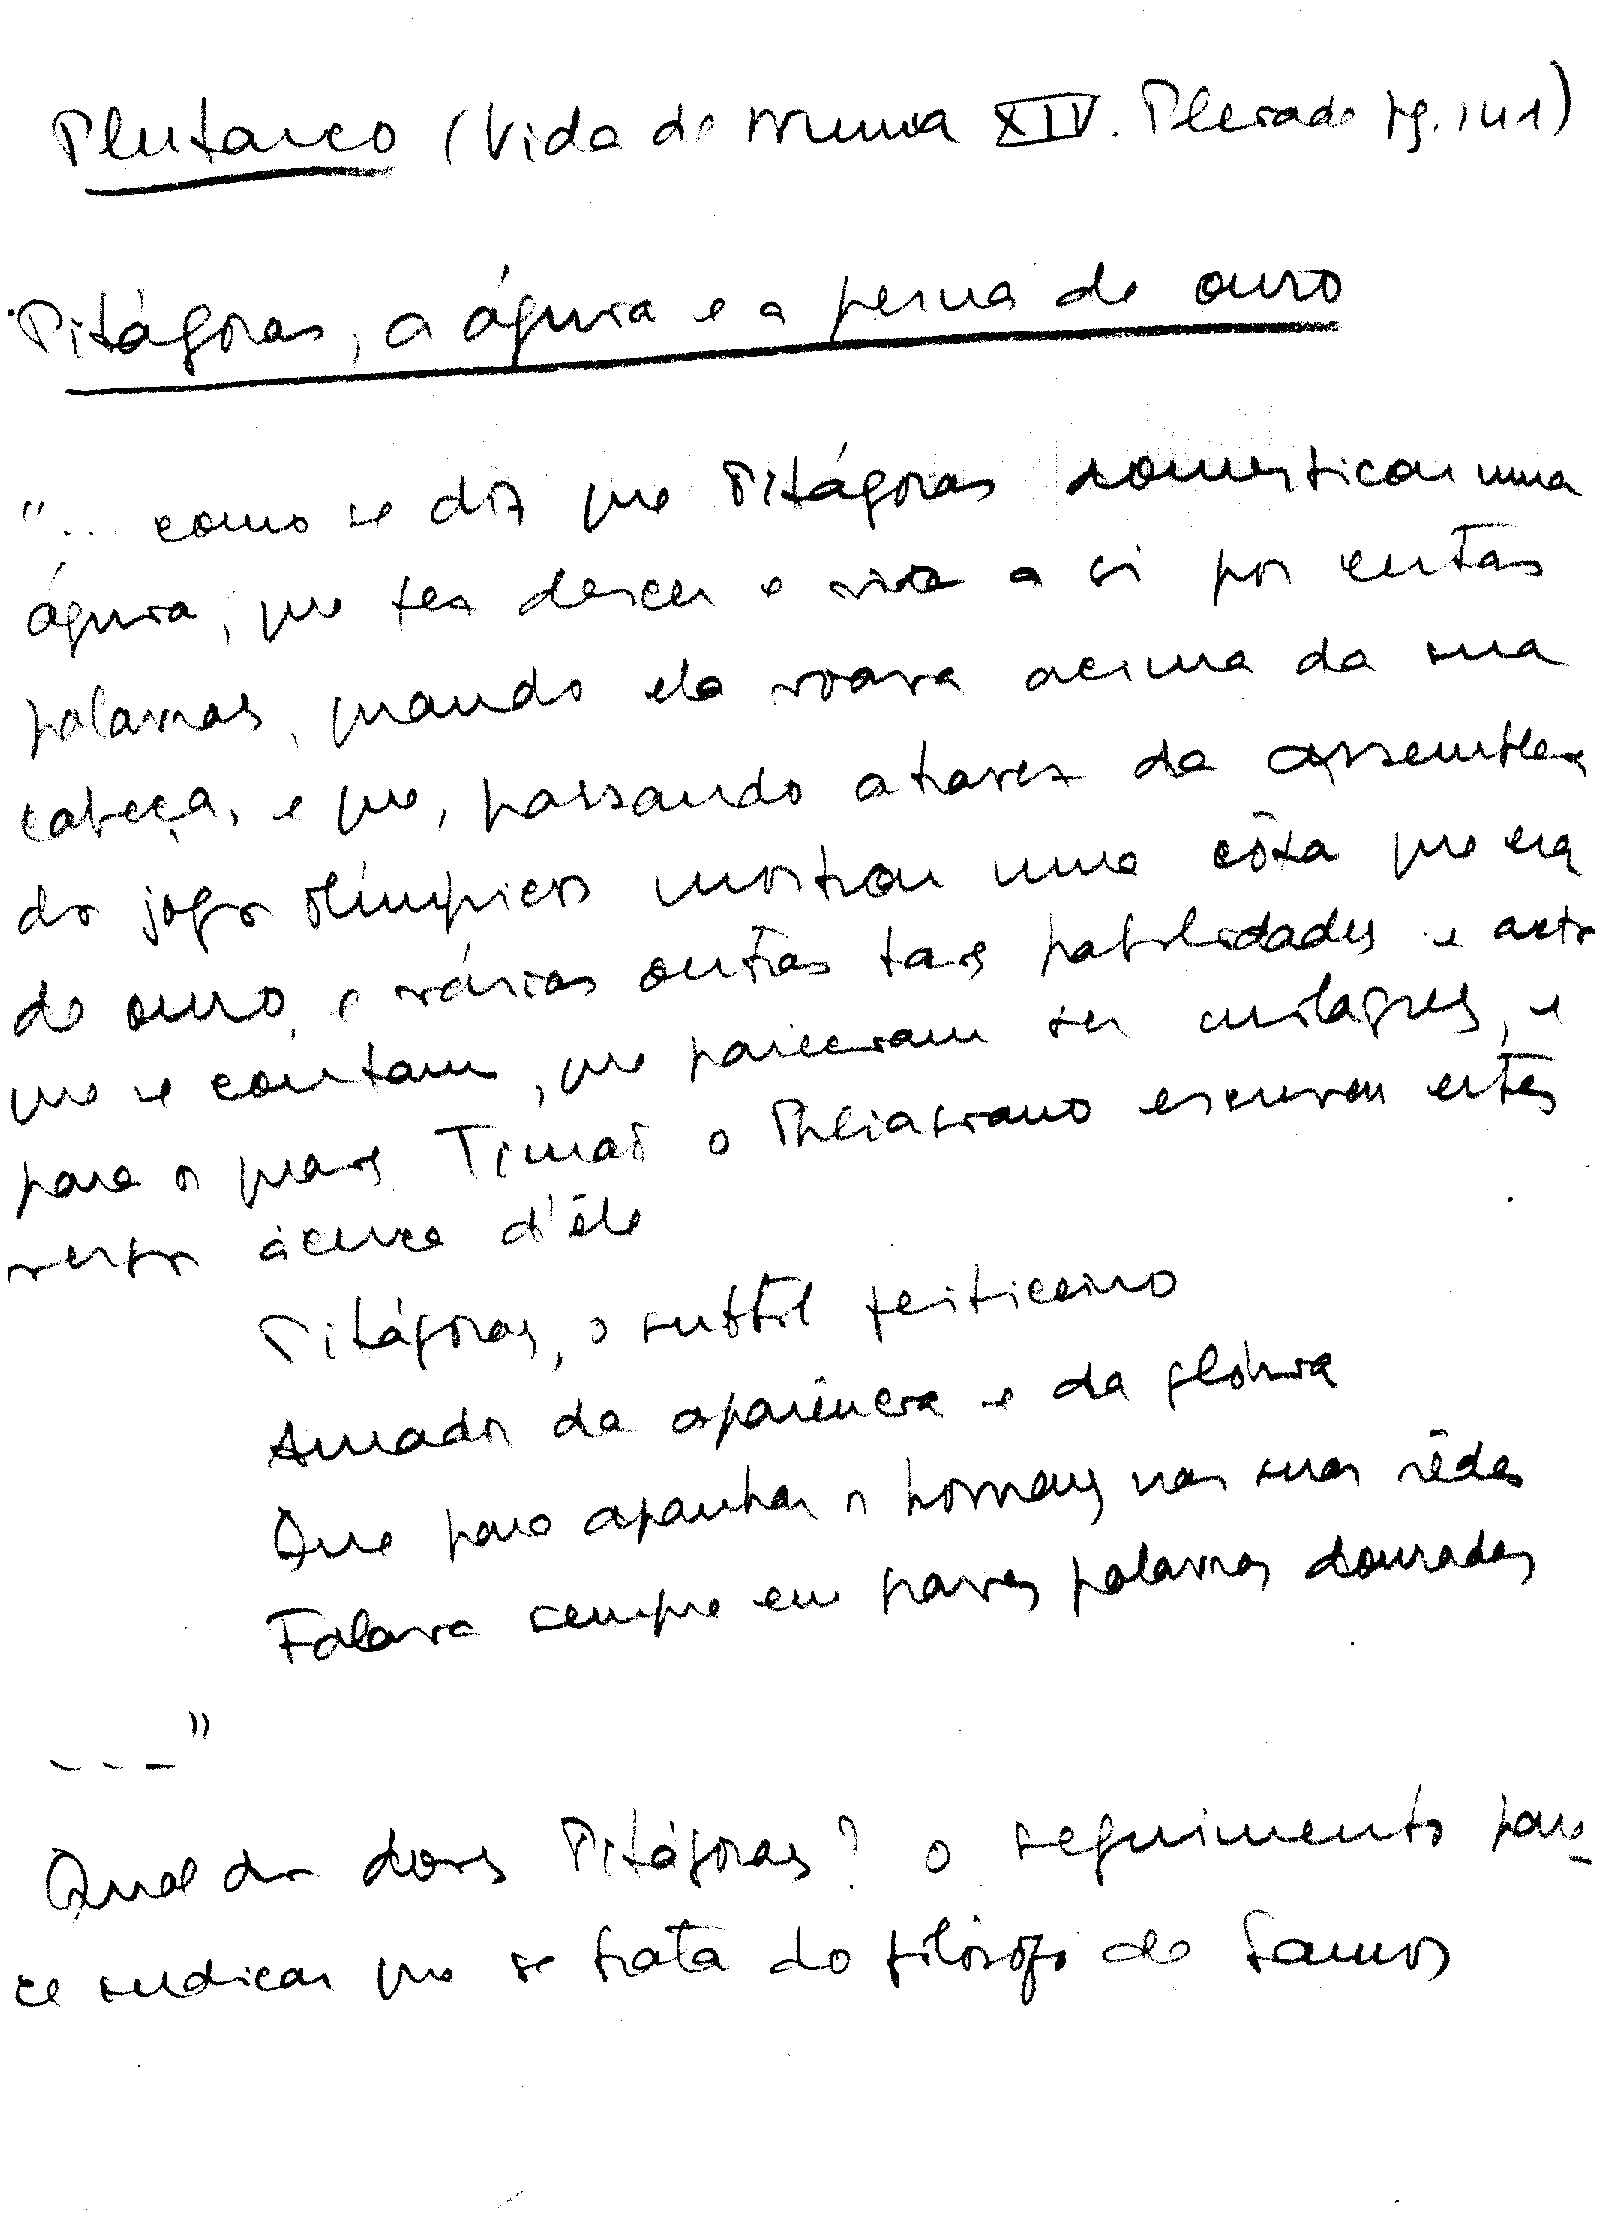 Plutarco (Vida de Numa XIV. Pleiade pg. 141)
Pitágoras, a águia e a perna de ouro
"... como se diz que Pitágoras domesticou uma
águia, que fez descer e vir a si por certas
palavras, quando ela voava acima da sua
cabeça, e que, passando através da assembleia
dos jogos olímpicos mostrou uma côxa que era
de ouro, e várias outras tais habilidades e actos
que se contam, que pareceram ser milagres, e
para os quais Timão o Phliasiano escreveu estes
versos àcerca d'êle
Pitágoras, o subtil feiticeiro
Amador da aparência e da glória
Que para apanhar os homens nas suas rêdes
Falava sempre em graves palavras douradas
---"
Qual dos dois Pitágoras? O seguimento pare-
ce indicar que se trata do filósofo de Samos